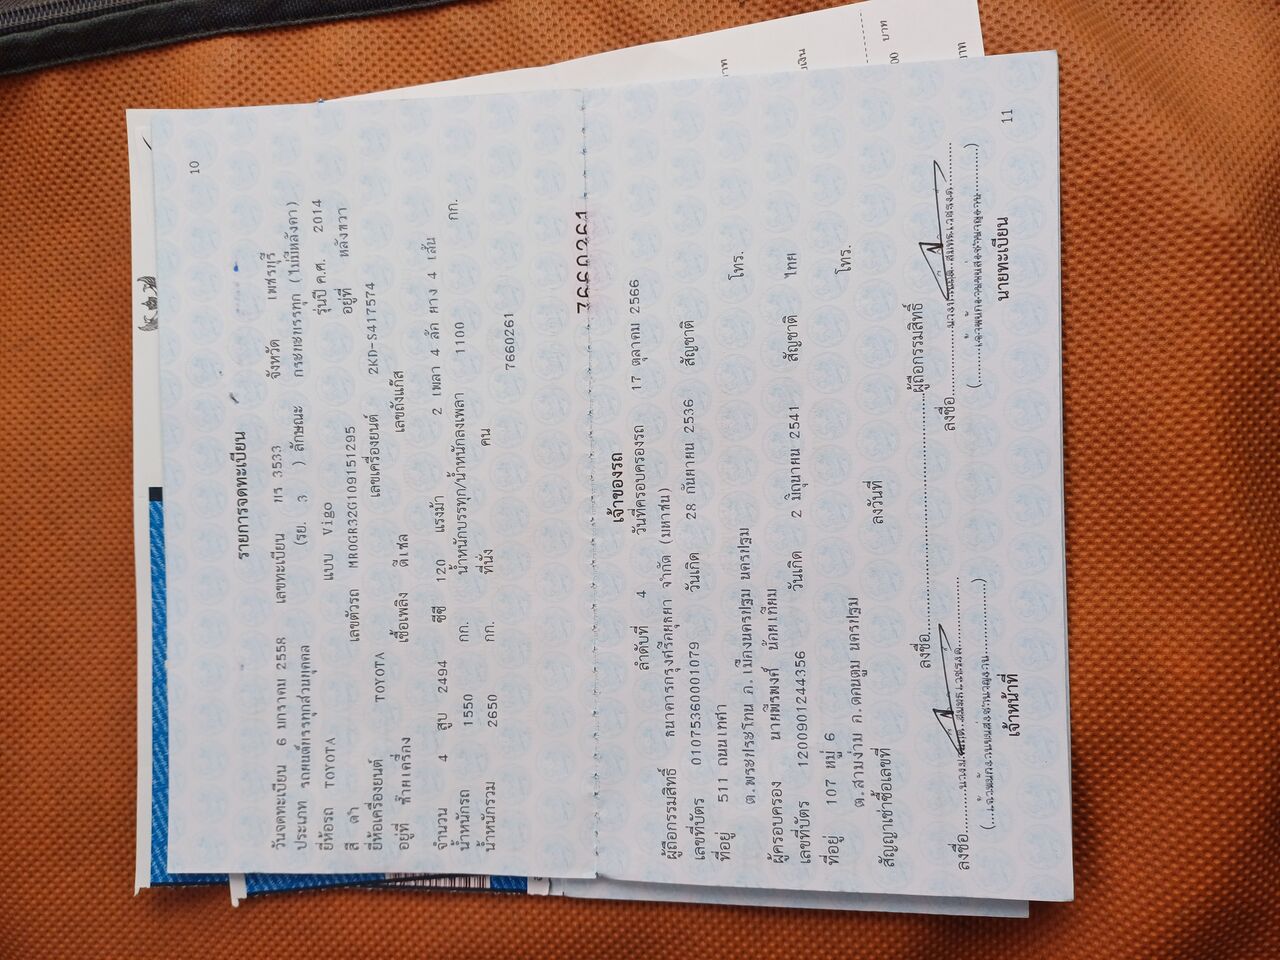 10
รายการจดทะเบียน
วันจดทะเบียน 6 มกราคม 2558 เลขทะเบียน 3533 จังหวัด เพชรบุรี
ประเภท รถยนต์บรรทุกส่วนบุคคล (รย. 3 ) ลักษณะ กระบะบรรทุก (ไม่มีหลังคา)
ยี่ห้อรถ TOYOTA แบบ Vigo รุ่นปี ค.ศ. 2014
สี ดำ เลขตัวรถ MR0GR32G109151295 อยู่ที่ หลังขวา
ยี่ห้อเครื่องยนต์ TOYOTA เลขเครื่องยนต์ 2KD-S417574
อยู่ที่ ซ้ายเครื่อง เชื้อเพลิง ดีเซล เลขถังแก๊ส
จำนวน 4 สูบ 2494 ซีซี 120 แรงม้า 2 เพลา 4 ล้อ ยาง 4 เส้น
น้ำหนักรถ 1550 กก. น้ำหนักบรรทุก/น้ำหนักลงเพลา 1100 กก.
น้ำหนักรวม 2650 กก. ที่นั่ง คน
7660261
7660261
เจ้าของรถ
ลำดับที่ 4 วันที่ครอบครองรถ 17 ตุลาคม 2566
ผู้ถือกรรมสิทธิ์ ธนาคารกรุงศรีอยุธยา จำกัด (มหาชน)
เลขที่บัตร 0107536001079 วันเกิด 28 กันยายน 2536 สัญชาติ
ที่อยู่ 511 ถนนเทศา โทร.
ต.พระประโทน อ.เมืองนครปฐม นครปฐม
ผู้ครอบครอง นายพีรพงศ์ น้อยเทียม
เลขที่บัตร 1200901244356 วันเกิด 2 มิถุนายน 2541 สัญชาติ ไทย
ที่อยู่ 107 หมู่ 6 โทร.
ต.สามง่าม อ.ดอนตูม นครปฐม
สัญญาเช่าซื้อเลขที่ ลงวันที่
ลงชื่อ ผู้ถือกรรมสิทธิ์
ลงชื่อ ลงชื่อ
เจ้าหน้าที่ นายทะเบียน
11
บาท
00 บาท